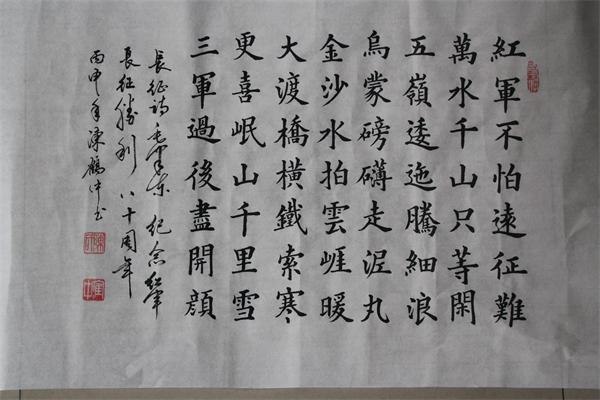 紅軍不怕遠征難
萬水千山只等閑
五嶺逶迤騰細浪
烏蒙磅礴走泥丸
金沙水拍雲崕暖
大渡橋橫鐵索寒
更喜岷山千里雪
三軍過後盡開顏
長征詩毛澤東 紀念紅軍
長征勝利八十周年
丙申年陳鶴中书